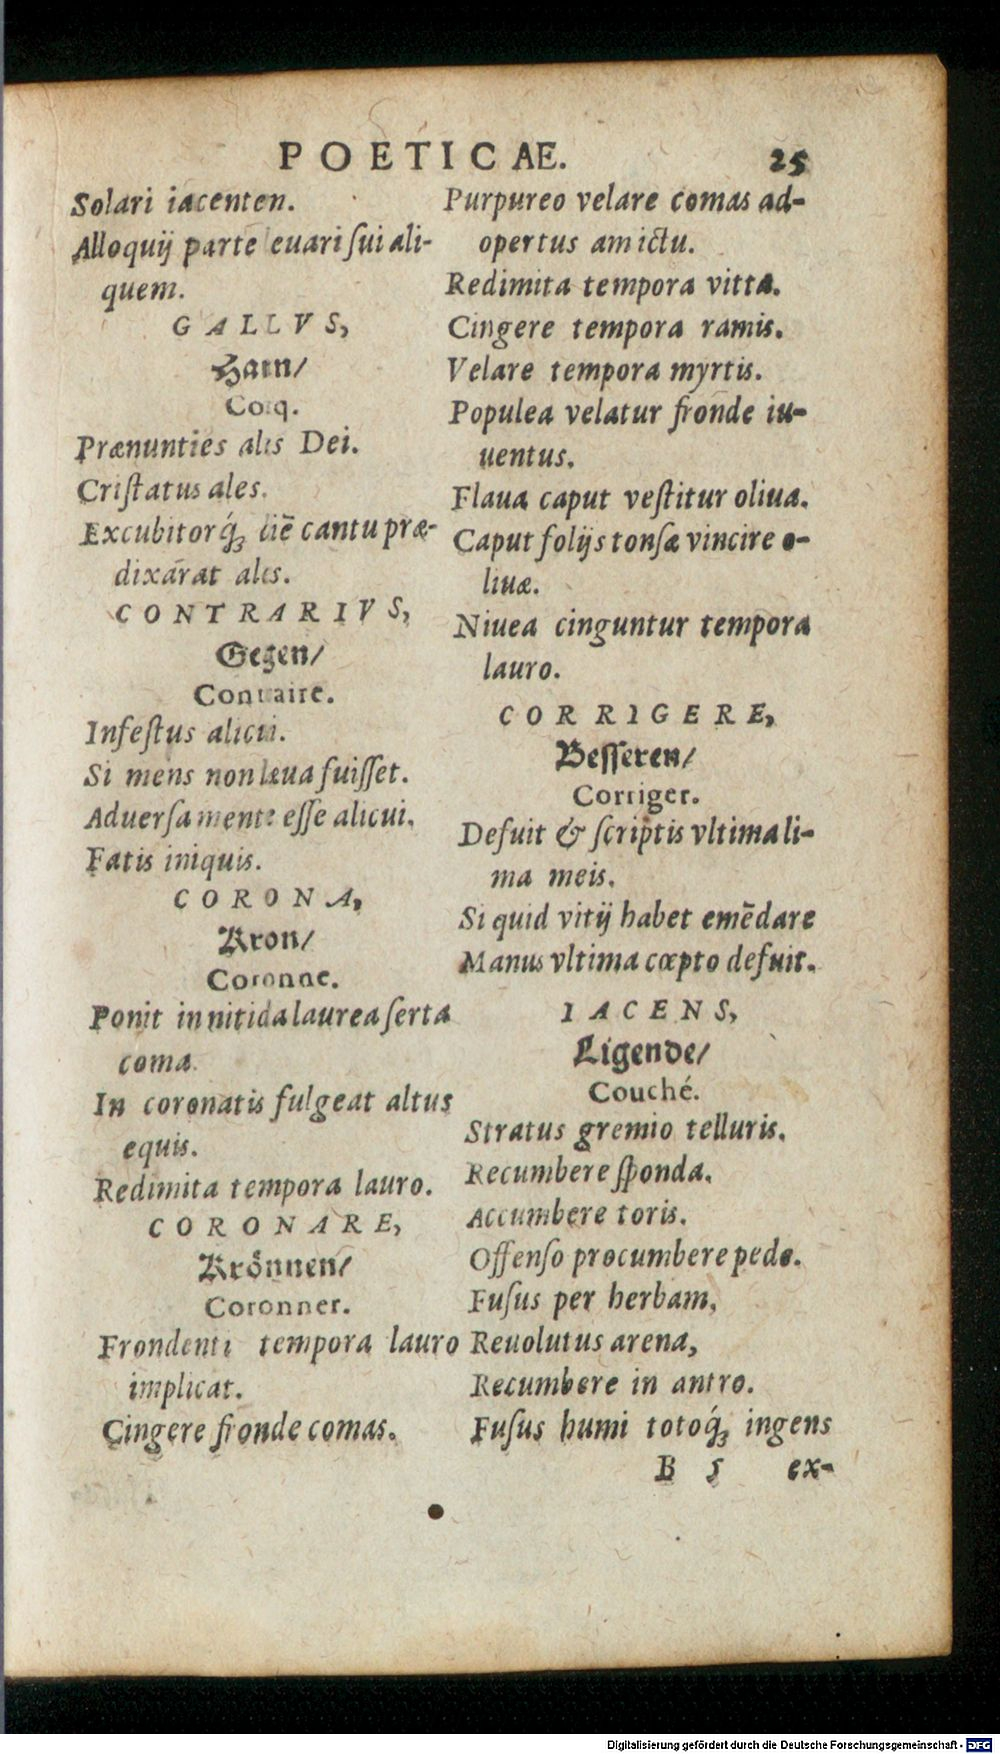 POETICAE. 25
Solari iacenten.
Alloquij parte leuari ſui ali-
quem.
GALLVS,
Han/
Coq.
Prænunties ales Dei.
Criſtatus ales.
Excubitorq́ꝫ diē cantu præ-
dixarat ales.
CONTRARIVS,
Gegen/
Contraire.
Infeſtus alicui.
Si mens non læua fuiſſet.
Aduerſa mente eſſe alicui.
Fatis iniquis.
CORONA,
Kron/
Coronne.
Ponit in nitida laurea ſerta
coma.
In coronatis fulgeat altus
equis.
Redimita tempora lauro.
CORONARE,
Krönnen/
Coronner.
Frondenti tempora lauro
implicat.
Cingere fronde comas.
Purpureo velare comas ad-
opertus amictu.
Redimita tempora vitta.
Cingere tempora ramis.
Velare tempora myrtis.
Populea velatur fronde iu-
uentus.
Flaua caput veſtitur oliua.
Caput folijs tonſæ vincire o-
liuæ.
Niuea cinguntur tempora
lauro.
CORRIGERE,
Beſſeren/
Corriger.
Defuit & ſcriptis vltima li-
ma meis.
Si quid vitij habet emēdare
Manus vltima cœpto defuit.
IACENS,
Ligende/
Couché.
Stratus gremio telluris.
Recumbere ſponda.
Accumbere toris.
Offenſo procumbere pede.
Fuſus per herbam,
Reuolutus arena,
Recumbere in antro.
Fuſus humi totoq́ꝫ ingens
B 5 ex-
Digitalisierung gefördert durch die Deutsche Forschungsgemeinschaft - DFG